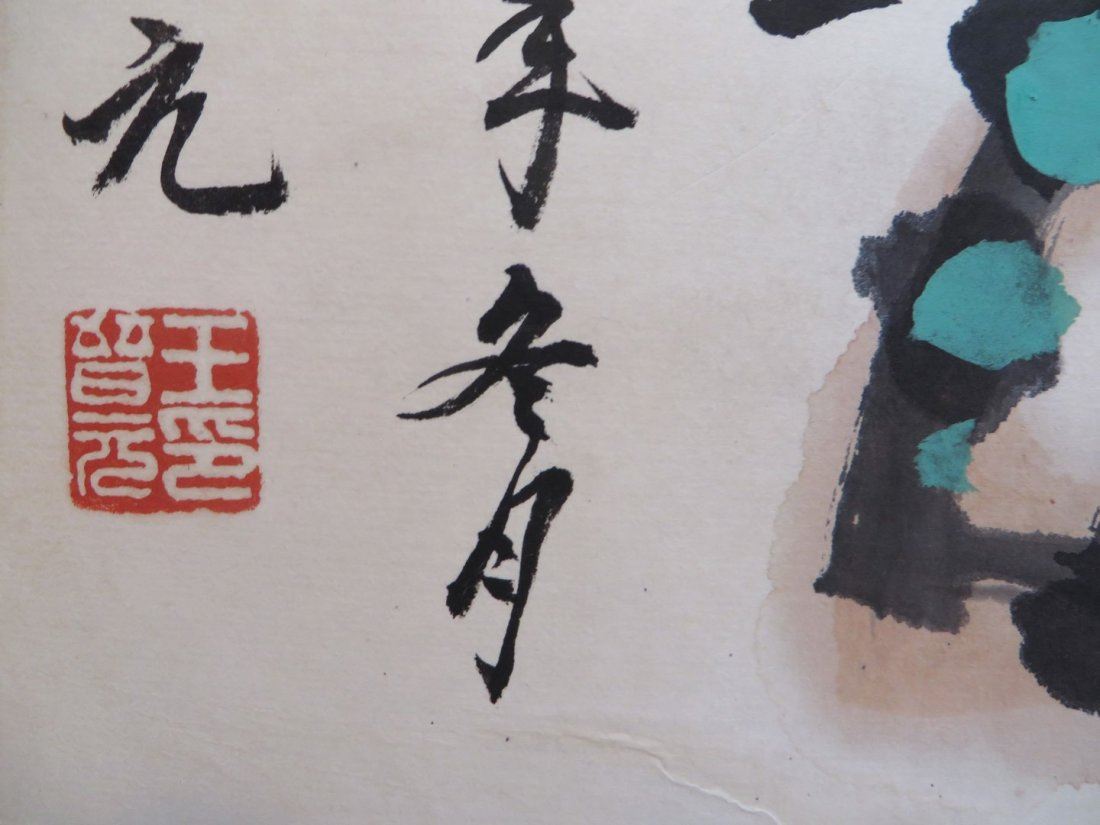 年冬月
元
王印
晉元